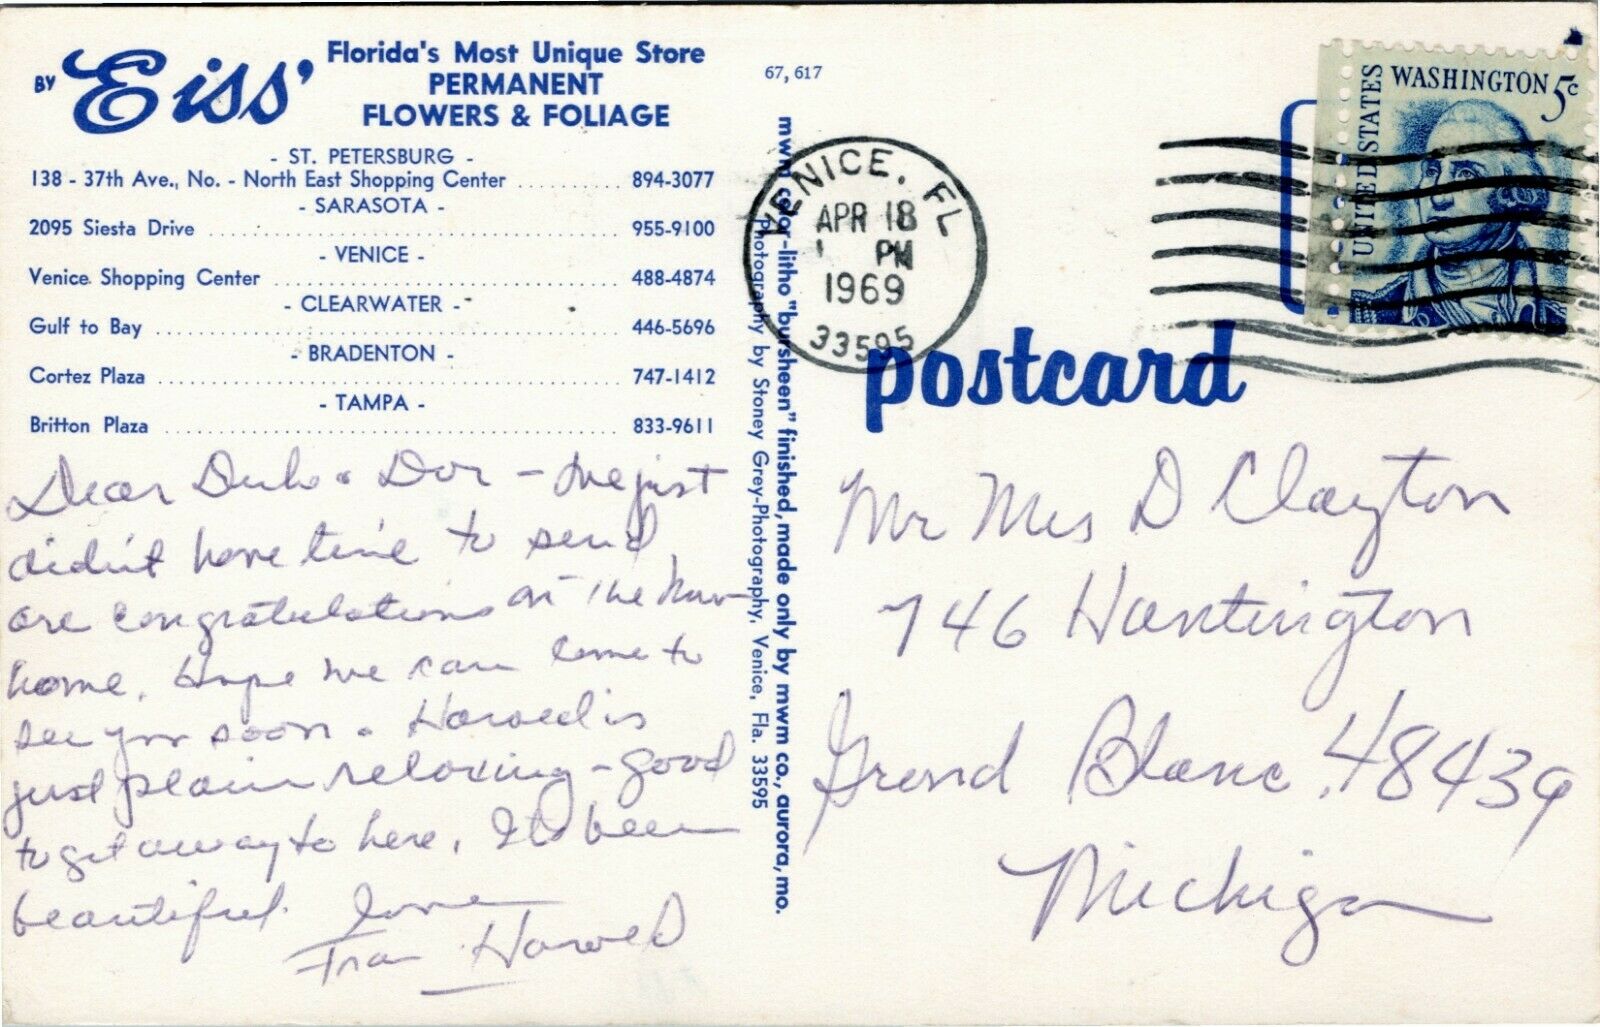 BY Eiss'
Florida's Most Unique Store
PERMANENT
FLOWERS & FOLIAGE
- ST. PETERSBURG -
138 - 37th Ave., No. - North East Shopping Center .......... 894-3077
- SARASOTA -
2095 Siesta Drive .......... 955-9100
- VENICE -
Venice Shopping Center .......... 488-4874
- CLEARWATER -
Gulf to Bay .......... 446-5696
- BRADENTON -
Cortez Plaza .......... 747-1412
- TAMPA -
Britton Plaza .......... 833-9611
Dear & Dor - We just
didn't have time to send
are congratulations on the new
home. Hope we can come to
see you soon. Harold is
just plain relaxing - good
to get away to here. Its been
beautiful. Love
Fran Harold
67, 617
mwm color-litho "bursheen" finished, made only by mwm co., aurora, mo.
Photography by Stoney Grey-Photography, Venice, Fla. 33595
VENICE, FL
APR 18
PM
1969
33595
UNITED STATES
WASHINGTON 5c
postcard
Mr Mrs D Clayton
746 Huntington
Grand Blanc, 48439
Michigan